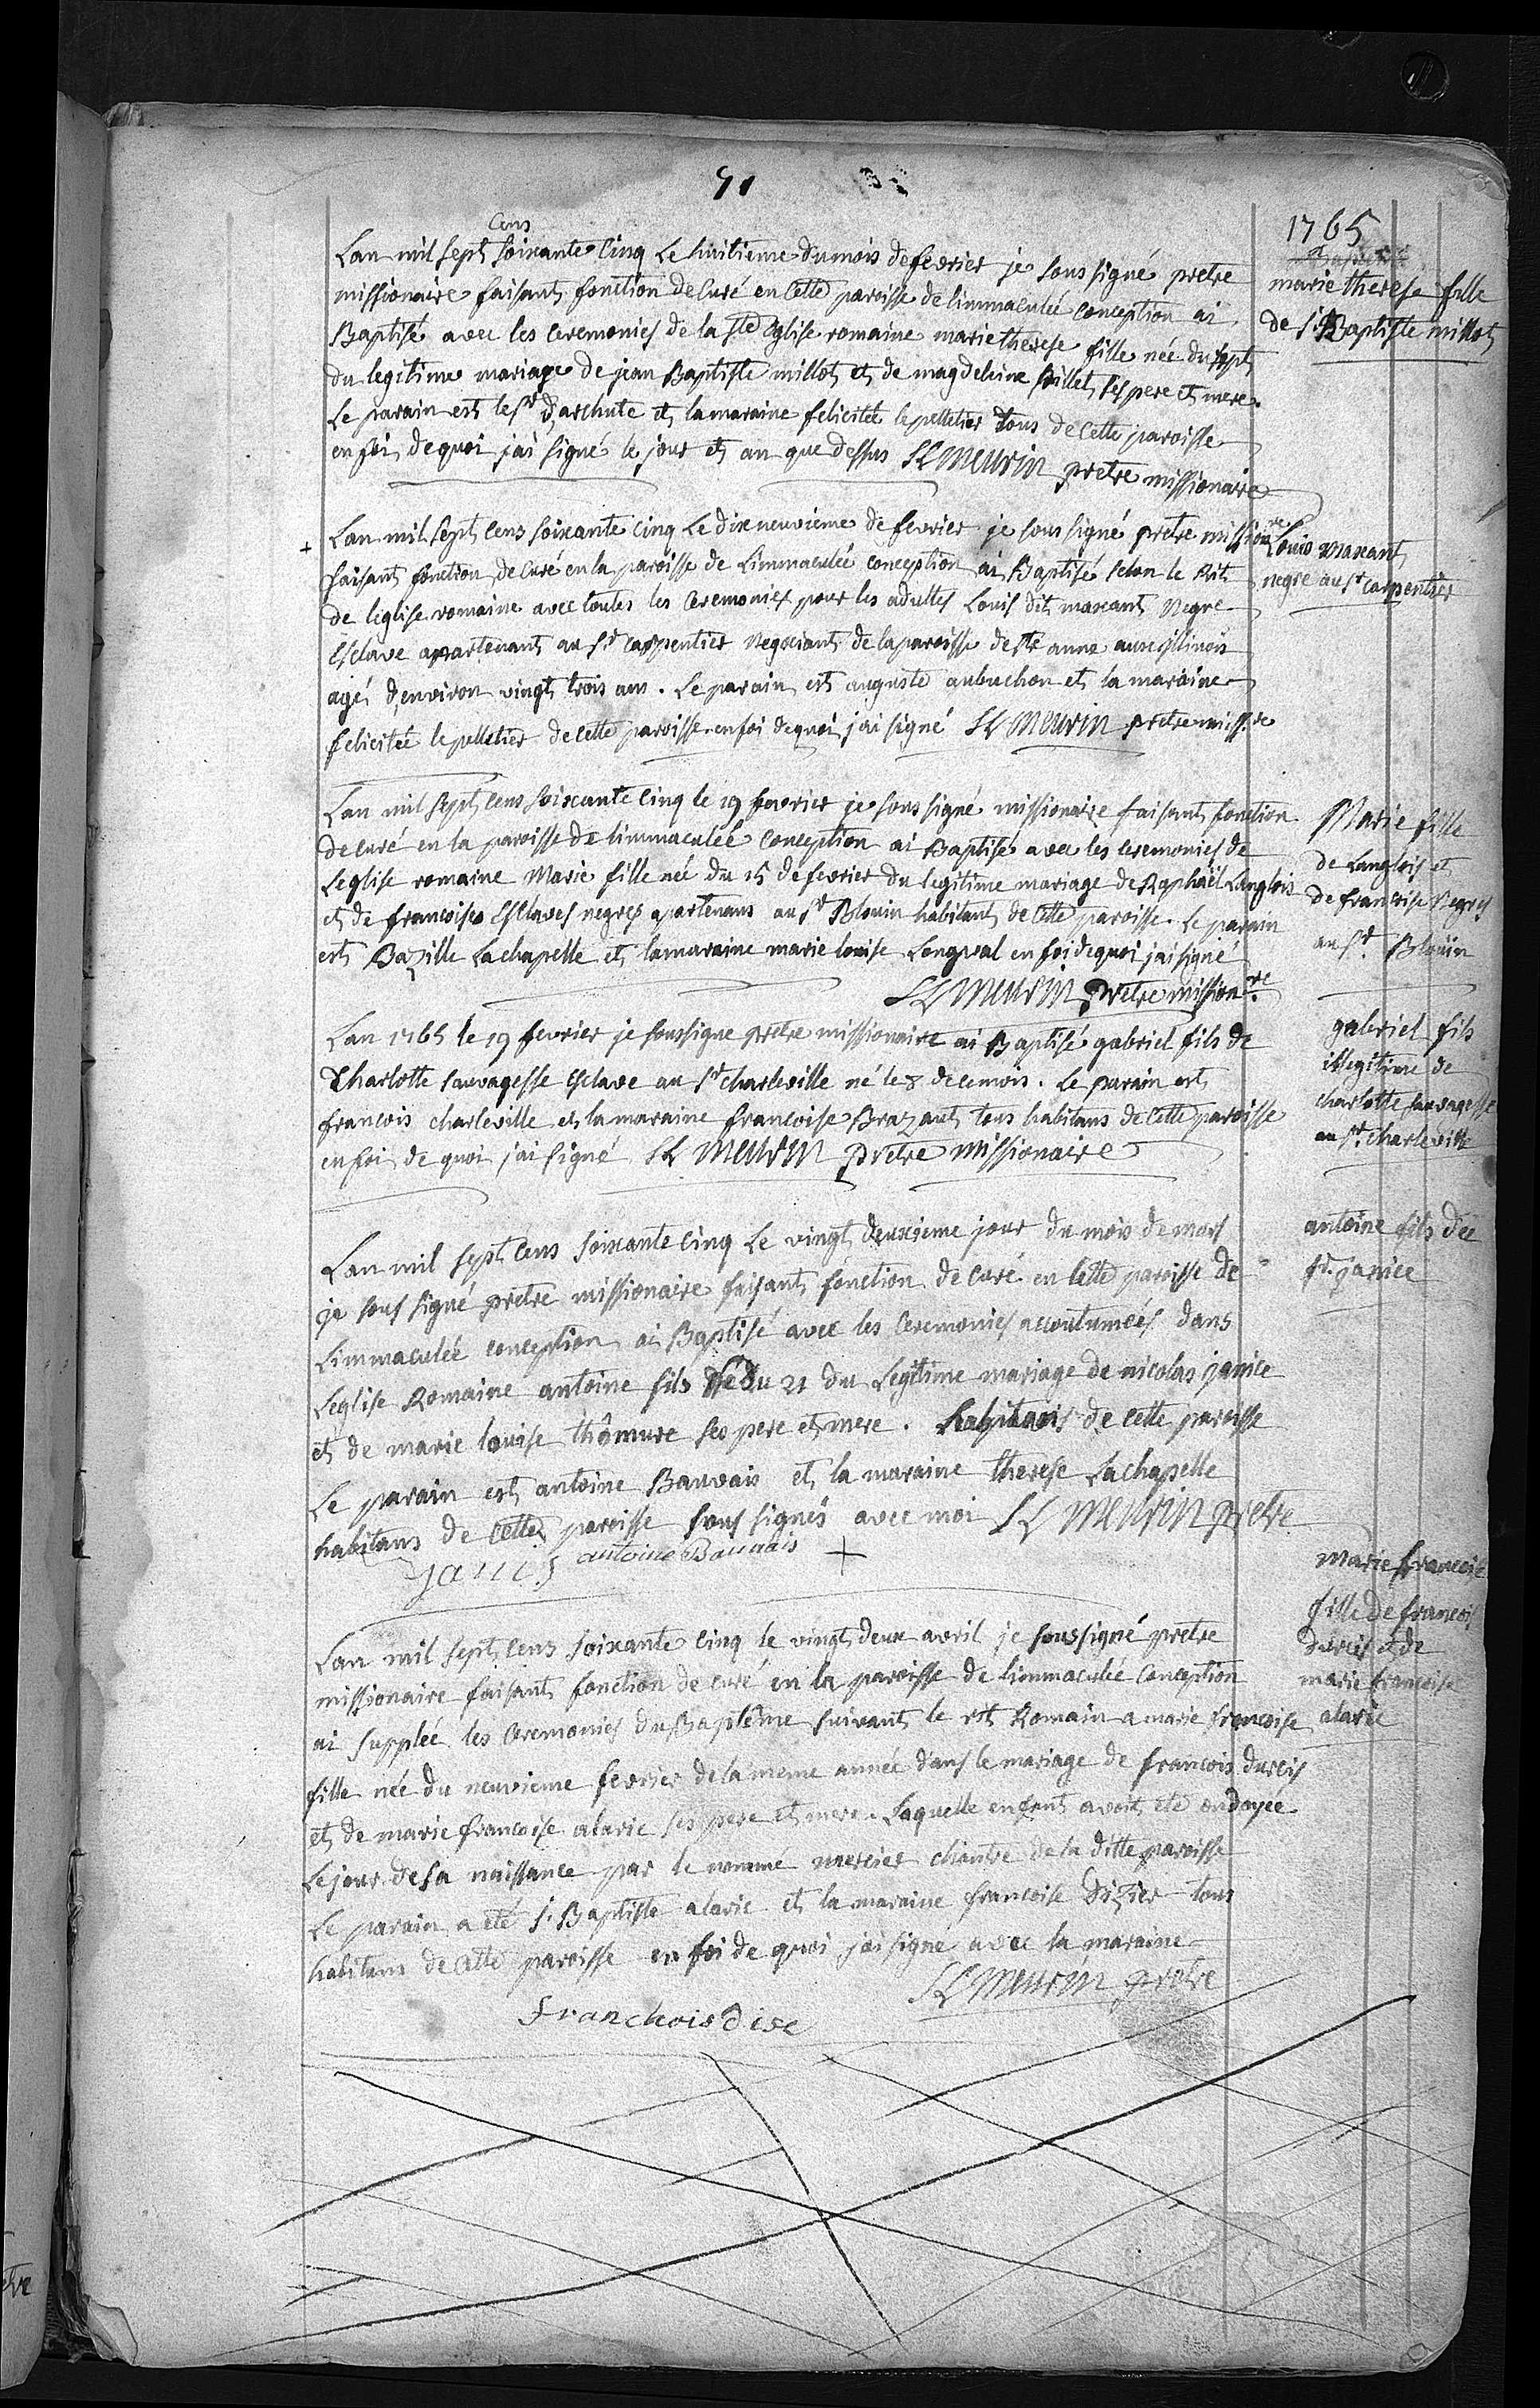 91
1765
Cens
Lan mil sept soixante Cinq Le huitieme du mois de fevrier je sous signé pretre
missionaire faisant fonction de Curé en Cette paroisse de limmaculée Conception ai
Baptisé avec les Ceremonies de la ste Eglise romaine marie therese fille née du sept
du legitime mariage de jean Baptiste millot et de magdeleine pillet ses pere et mere.
Le parain est le sr d'archute et la maraine felicitée lepelletier tous de cette paroisse
en foi de quoi j'ai signé le jour et an que dessus SL Meurin pretre missionaire
marie therese fille
de j. Baptiste millot
+ Lan mil sept Cens soixante Cinq Le dixneuvieme de fevrier je sous signé pretre missionre
faisant fonction de Curé en la paroisse de Limmaculée Conception ai Baptisé selon le Rit
de leglise romaine avec toutes les Ceremonies pour les adultes Louis dit maxant Negre
Esclave apartenant au sr Carpentier Negociant de la paroisse de ste anne aux illinois
agé d'environ vingt trois ans. Le parain est auguste aubuchon et la maraine
felicitée lepelletier de cette paroisse en foi de quoi j'ai signé SL Meurin pretre miss.re
Louis maxant
negre au sr carpentier
Lan mil sept Cens soixante Cinq le 19 fevrier je sous signé missionaire faisant fonction
de curé en la paroisse de limmaculée Conception ai Baptisé avec les ceremonies de
Leglise romaine Marie fille née du 15 de fevrier du legitime mariage de Raphaël Langlois
et de francoise Esclaves negres apartenans au sr Blouin habitant de Cette paroisse. Le parain
est Bazille Lachapelle et la maraine marie louise Longval en foi de quoi j'ai signé
SL Meurin pretre missionre
Marie fille
de Langlois et
de francoise Negres
au sr. Blouin
Lan 1765 le 19 fevrier je soussigné pretre missionaire ai Baptisé gabriel fils de
Charlotte sauvagesse Esclave au sr charleville né le 8 de ce mois. Le parain est
francois charleville et la maraine francoise Brazaut tous habitans de Cette paroisse
en foi de quoi j'ai signé SL Meurin Pretre missionaire
gabriel fils
illegitime de
charlotte sauvagesse
au sr. charleville
Lan mil sept Cens soixante Cinq Le vingt deuxieme jour du mois de mars
je sous signé pretre missionaire faisant fonction de Curé en Cette paroisse de
Limmaculée conception ai Baptisé avec les Ceremonies accoutumées dans
Leglise Romaine antoine fils Né du 21 du Legitime mariage de nicolas janice
et de marie louise thômure ses pere et mere. habitans de cette paroisse
Le parain est antoine Bauvais et la maraine therese Lachapelle
habitans de Cette paroisse sous signés avec moi SL Meurin pretre
janis antoine Bauvais +
antoine fils de
janice
Lan mil sept Cens soixante Cinq le vingt deux avril je soussigné pretre
missionaire faisant fonction de curé en la paroisse de limmaculée Conception
ai supplée les Ceremonies du Baptême suivant le rit Romain a marie francoise
fille née du neuvieme fevrier de la meme année dans le mariage de francois durcis
et de marie francoise alarie ses pere et mere. Laquelle enfant avoit été ondoyée
Le jour de sa naissance par le nommé mercier chantre de la ditte paroisse
Le parain a été J. Baptiste alarie et la maraine francoise Dizier tous
habitans de Cette paroisse en foi de quoi j'ai signé avec la maraine
SL Meurin pretre
franchois dise
marie francoise
fille de francois
durcis et de
marie francoise
alarie